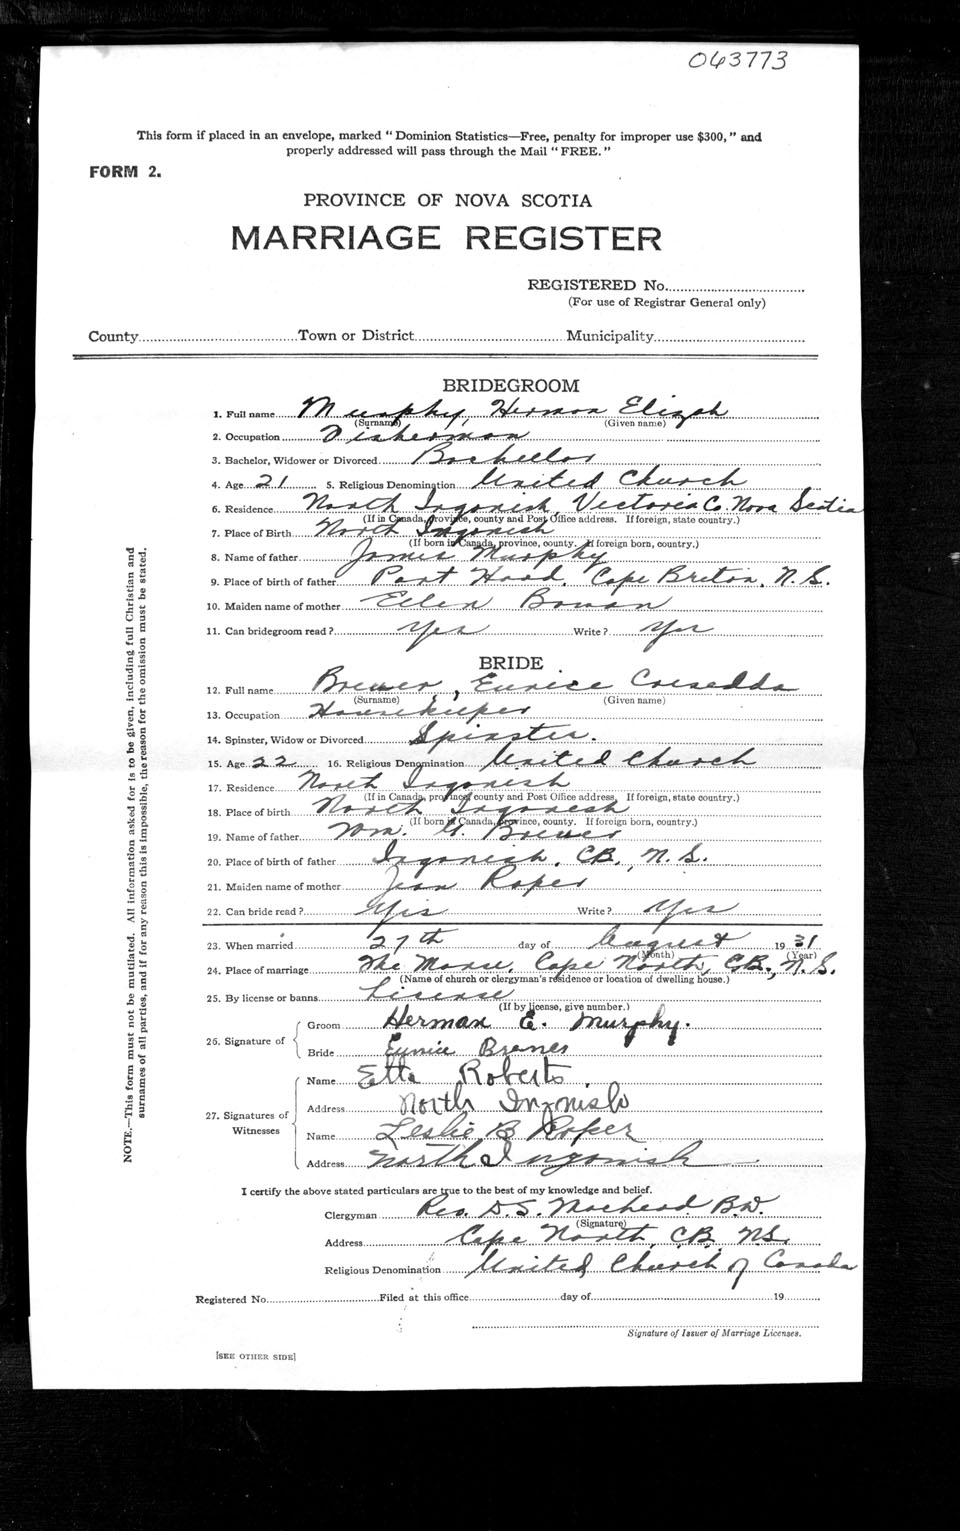 043773
This form if placed in an envelope, marked "Dominion Statistics—Free, penalty for improper use $300," and
properly addressed will pass through the Mail "FREE."
FORM 2.
PROVINCE OF NOVA SCOTIA
MARRIAGE REGISTER
REGISTERED No.
(For use of Registrar General only)
County Town or District Municipality
BRIDEGROOM
1. Full name Murphy, Herman Elizah
(Surname) (Given name)
2. Occupation Fisherman
3. Bachelor, Widower or Divorced Bachellor
4. Age 21 5. Religious Denomination United Church
6. Residence North Ingonish, Victoria Co. Nova Scotia
(If in Canada, province, county and Post Office address. If foreign, state country.)
7. Place of Birth North Ingonish
(If born in Canada, province, county. If foreign born, country.)
8. Name of father James Murphy
9. Place of birth of father Port Hood, Cape Breton, N.S.
10. Maiden name of mother Ellen
11. Can bridegroom read? Yes Write? Yes
BRIDE
12. Full name Brewer, Eunice
(Surname) (Given name)
13. Occupation Housekeeper
14. Spinster, Widow or Divorced Spinster.
15. Age 22 16. Religious Denomination United Church
17. Residence North Ingonish
(If in Canada, province, county and Post Office address. If foreign, state country.)
18. Place of birth North Ingonish
(If born in Canada, province, county. If foreign born, country.)
19. Name of father Wm. Brewer
20. Place of birth of father Ingonish, C.B., N.S.
21. Maiden name of mother Jean Roper
22. Can bride read? Yes Write? Yes
23. When married 27th day of August 1931
(Month) (Year)
24. Place of marriage The Manse, Cape North, C.B., N.S.
(Name of church or clergyman's residence or location of dwelling house.)
25. By license or banns License
(If by license, give number.)
26. Signature of Groom Herman E. Murphy.
Bride Eunice Brewer
27. Signatures of Witnesses Name Etta Roberts.
Address North Ingonish
Name Leslie B Roper
Address North Ingonish
I certify the above stated particulars are true to the best of my knowledge and belief.
Clergyman Rev. D. S. B.D.
(Signature)
Address Cape North, C.B. N.S.
Religious Denomination United Church of Canada
Registered No. Filed at this office day of 19
Signature of Issuer of Marriage Licenses.
[SEE OTHER SIDE]
NOTE.—This form must not be mutilated. All information asked for is to be given, including full Christian and
surnames of all parties, and if for any reason this is impossible, the reason for the omission must be stated.